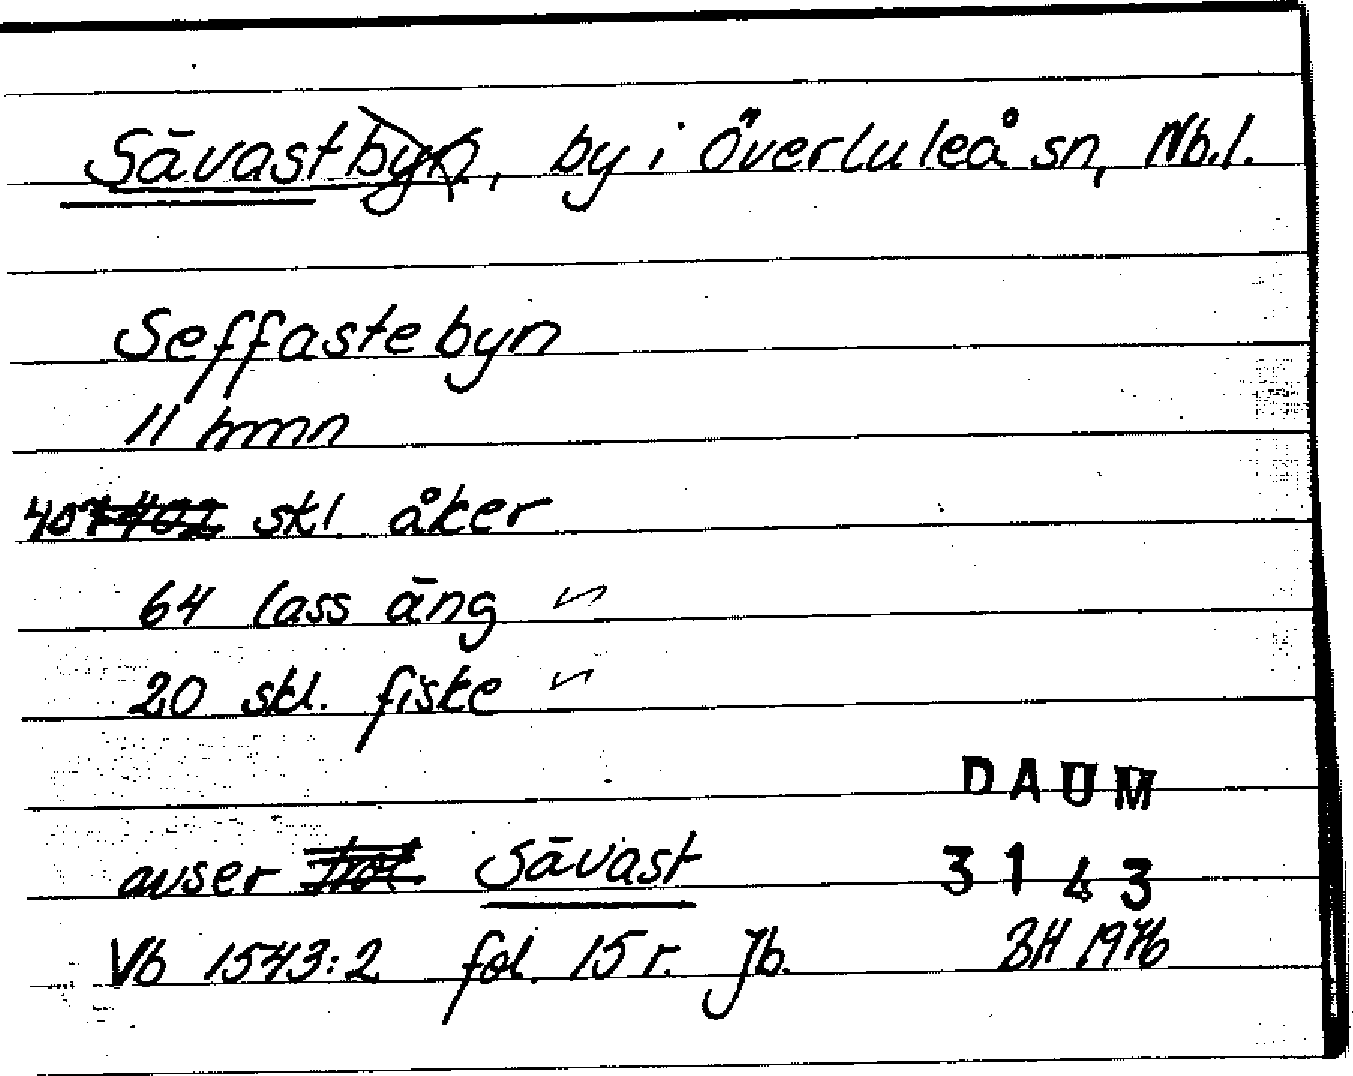 Sävastbyn, by i Överluleå sn, Nb.l.
Seffastebyn
11 hmn
407 402 skl åker
64 lass äng
20 skl. fiske
DAUM
avser Sävast
3143
Vb 1543:2 fol. 15 r. Jb.
BH 1976